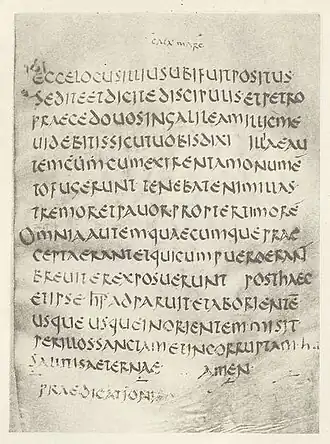 ECCELOCUSILLIUSUBIFUITPOSITUS
SEDITEETDICITEDISCIPULISETPETRO
PRAECEDOUOSINGALILEAMILLICME
UIDEBITISSICUTUOBISDIXI ILLAEAU
TEMCUMCUMEXIRENTAMONUMĒ
TOFUGERUNT TENEBATENIMILLAS
TREMORETPAUORPROPTERTIMORĒ
OMNIAAUTEMQUAECUMQUEPRAE
CEPTAERANTETQUICUMPUEROERANT
BREUITEREXPOSUERUNT POSTHAEC
ETIPSE ADPARUITETABORIENTE
USQUE USQUEINORIENTEMMISIT
PERILLOSSANCTAMETINCORRUPTAM
SALUTISAETERNAE AMEN
PRAEDICATIONIS